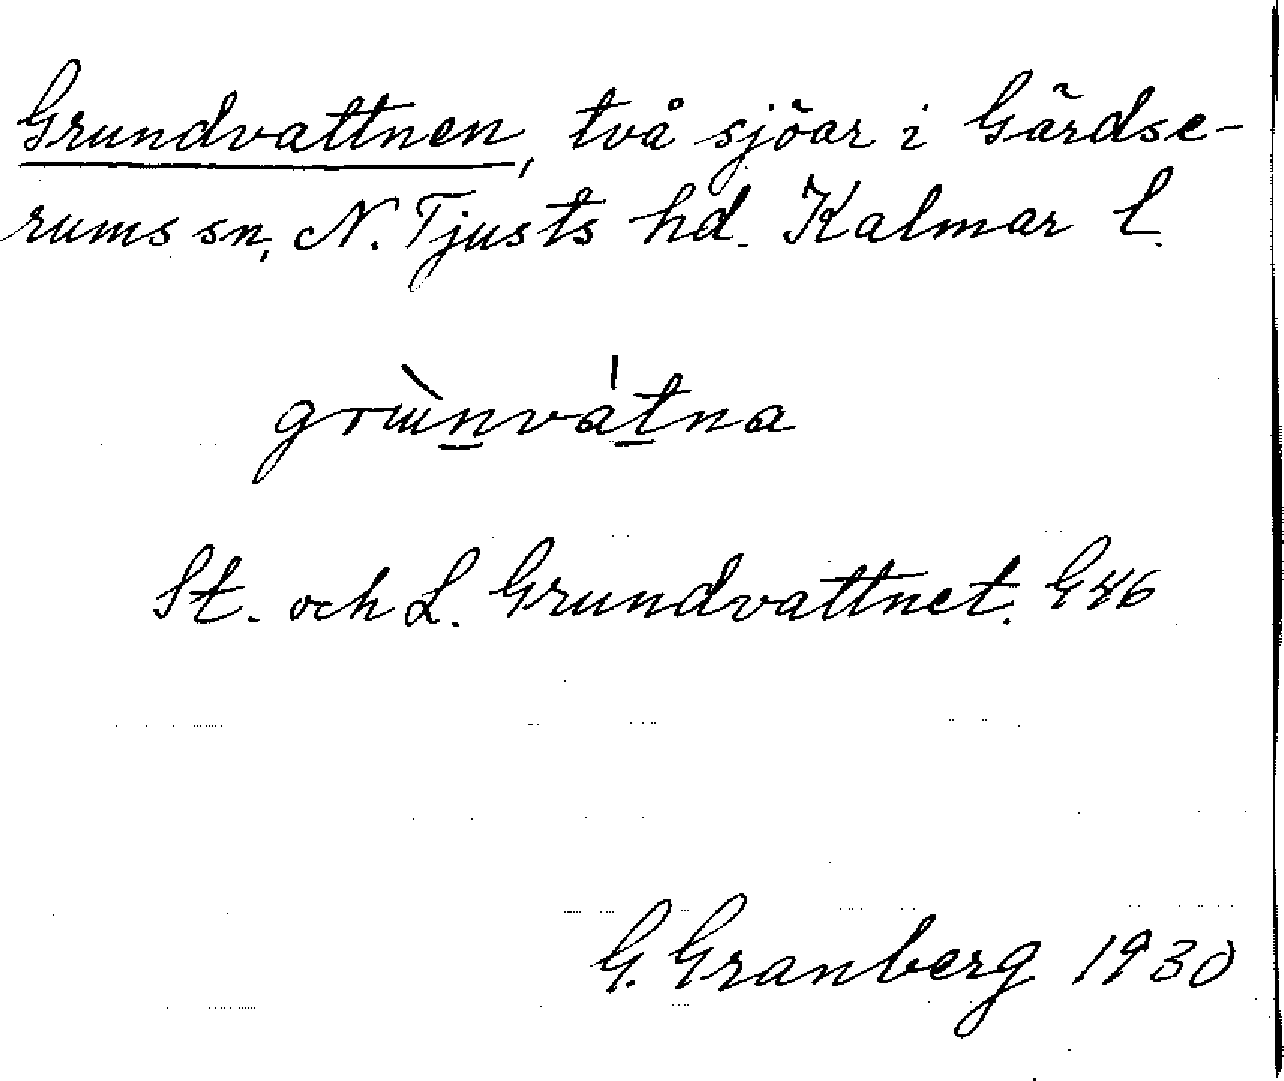 Grundvattnen, två sjöar i Gärdse-
rums sn, N. Tjusts hd. Kalmar l.
grɯ̀nvátna
St. och L. Grundvattnet. G46
G. Granberg 1930